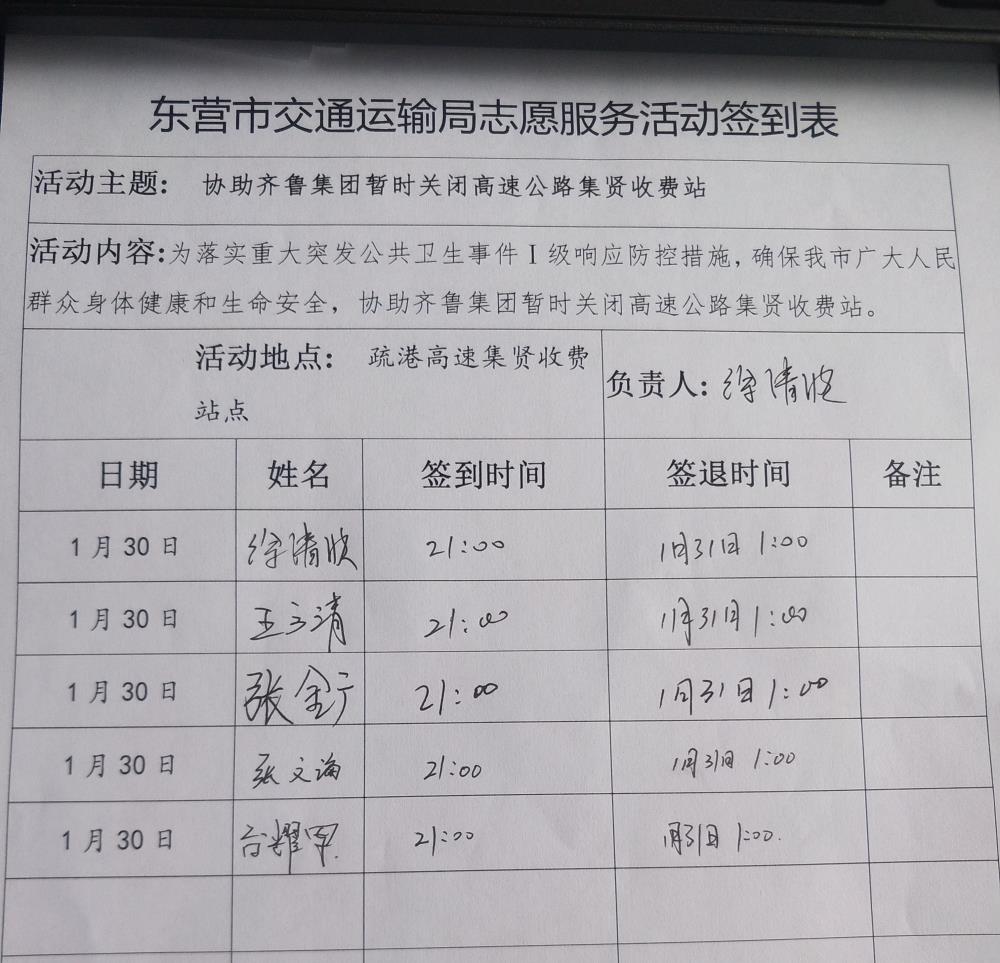 东营市交通运输局志愿服务活动签到表
活动主题: 协助齐鲁集团暂时关闭高速公路集贤收费站
活动内容:为落实重大突发公共卫生事件Ⅰ级响应防控措施,确保我市广大人民
群众身体健康和生命安全,协助齐鲁集团暂时关闭高速公路集贤收费站。
活动地点: 疏港高速集贤收费
站点
负责人: 徐清欣
日期 姓名 签到时间 签退时间 备注
1月30日 徐清欣 21:00 1月31日 1:00
1月30日 王立清 21:00 1月31日 1:00
1月30日 张金广 21:00 1月31日 1:00
1月30日 张文海 21:00 1月31日 1:00
1月30日 21:00 1月31日 1:00.